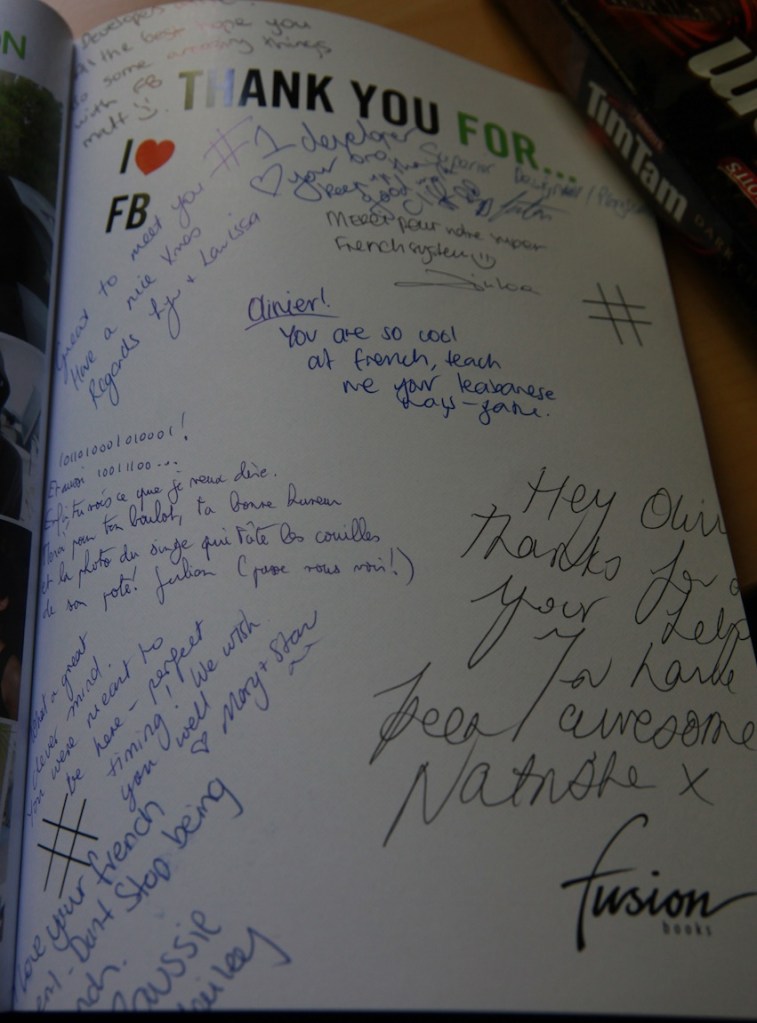 ON
Developers
all the best hope you
do some amazing things
with FB
matt :)
THANK YOU FOR...
I ❤
FB
#1 developer
♡ your
keep up
good
Superior
Merci pour notre super
French system :)
Great to meet you
Have a nice Xmas
Regards + Larissa
Olivier!
You are so cool
at french, teach
me your leabanese
ways - game.
#
101101000101000 1!
Et aussi 10011100...
Enfin, tu vois ce que je veux dire.
Merci pour ton boulot, ta bonne humeur
et la photo du singe qui tâte les couilles
de son pote! Julian (passe nous voir!)
What a great
clever mind.
You were meant to
be here - perfect
timing! We wish
you well
♡ Mary + Stan
Hey Oliv
thanks for
your help
You have
been awesome
Natashe x
#
Love your french
- Dont Stop being
Aussie
fusion
books
TimTam
DARK